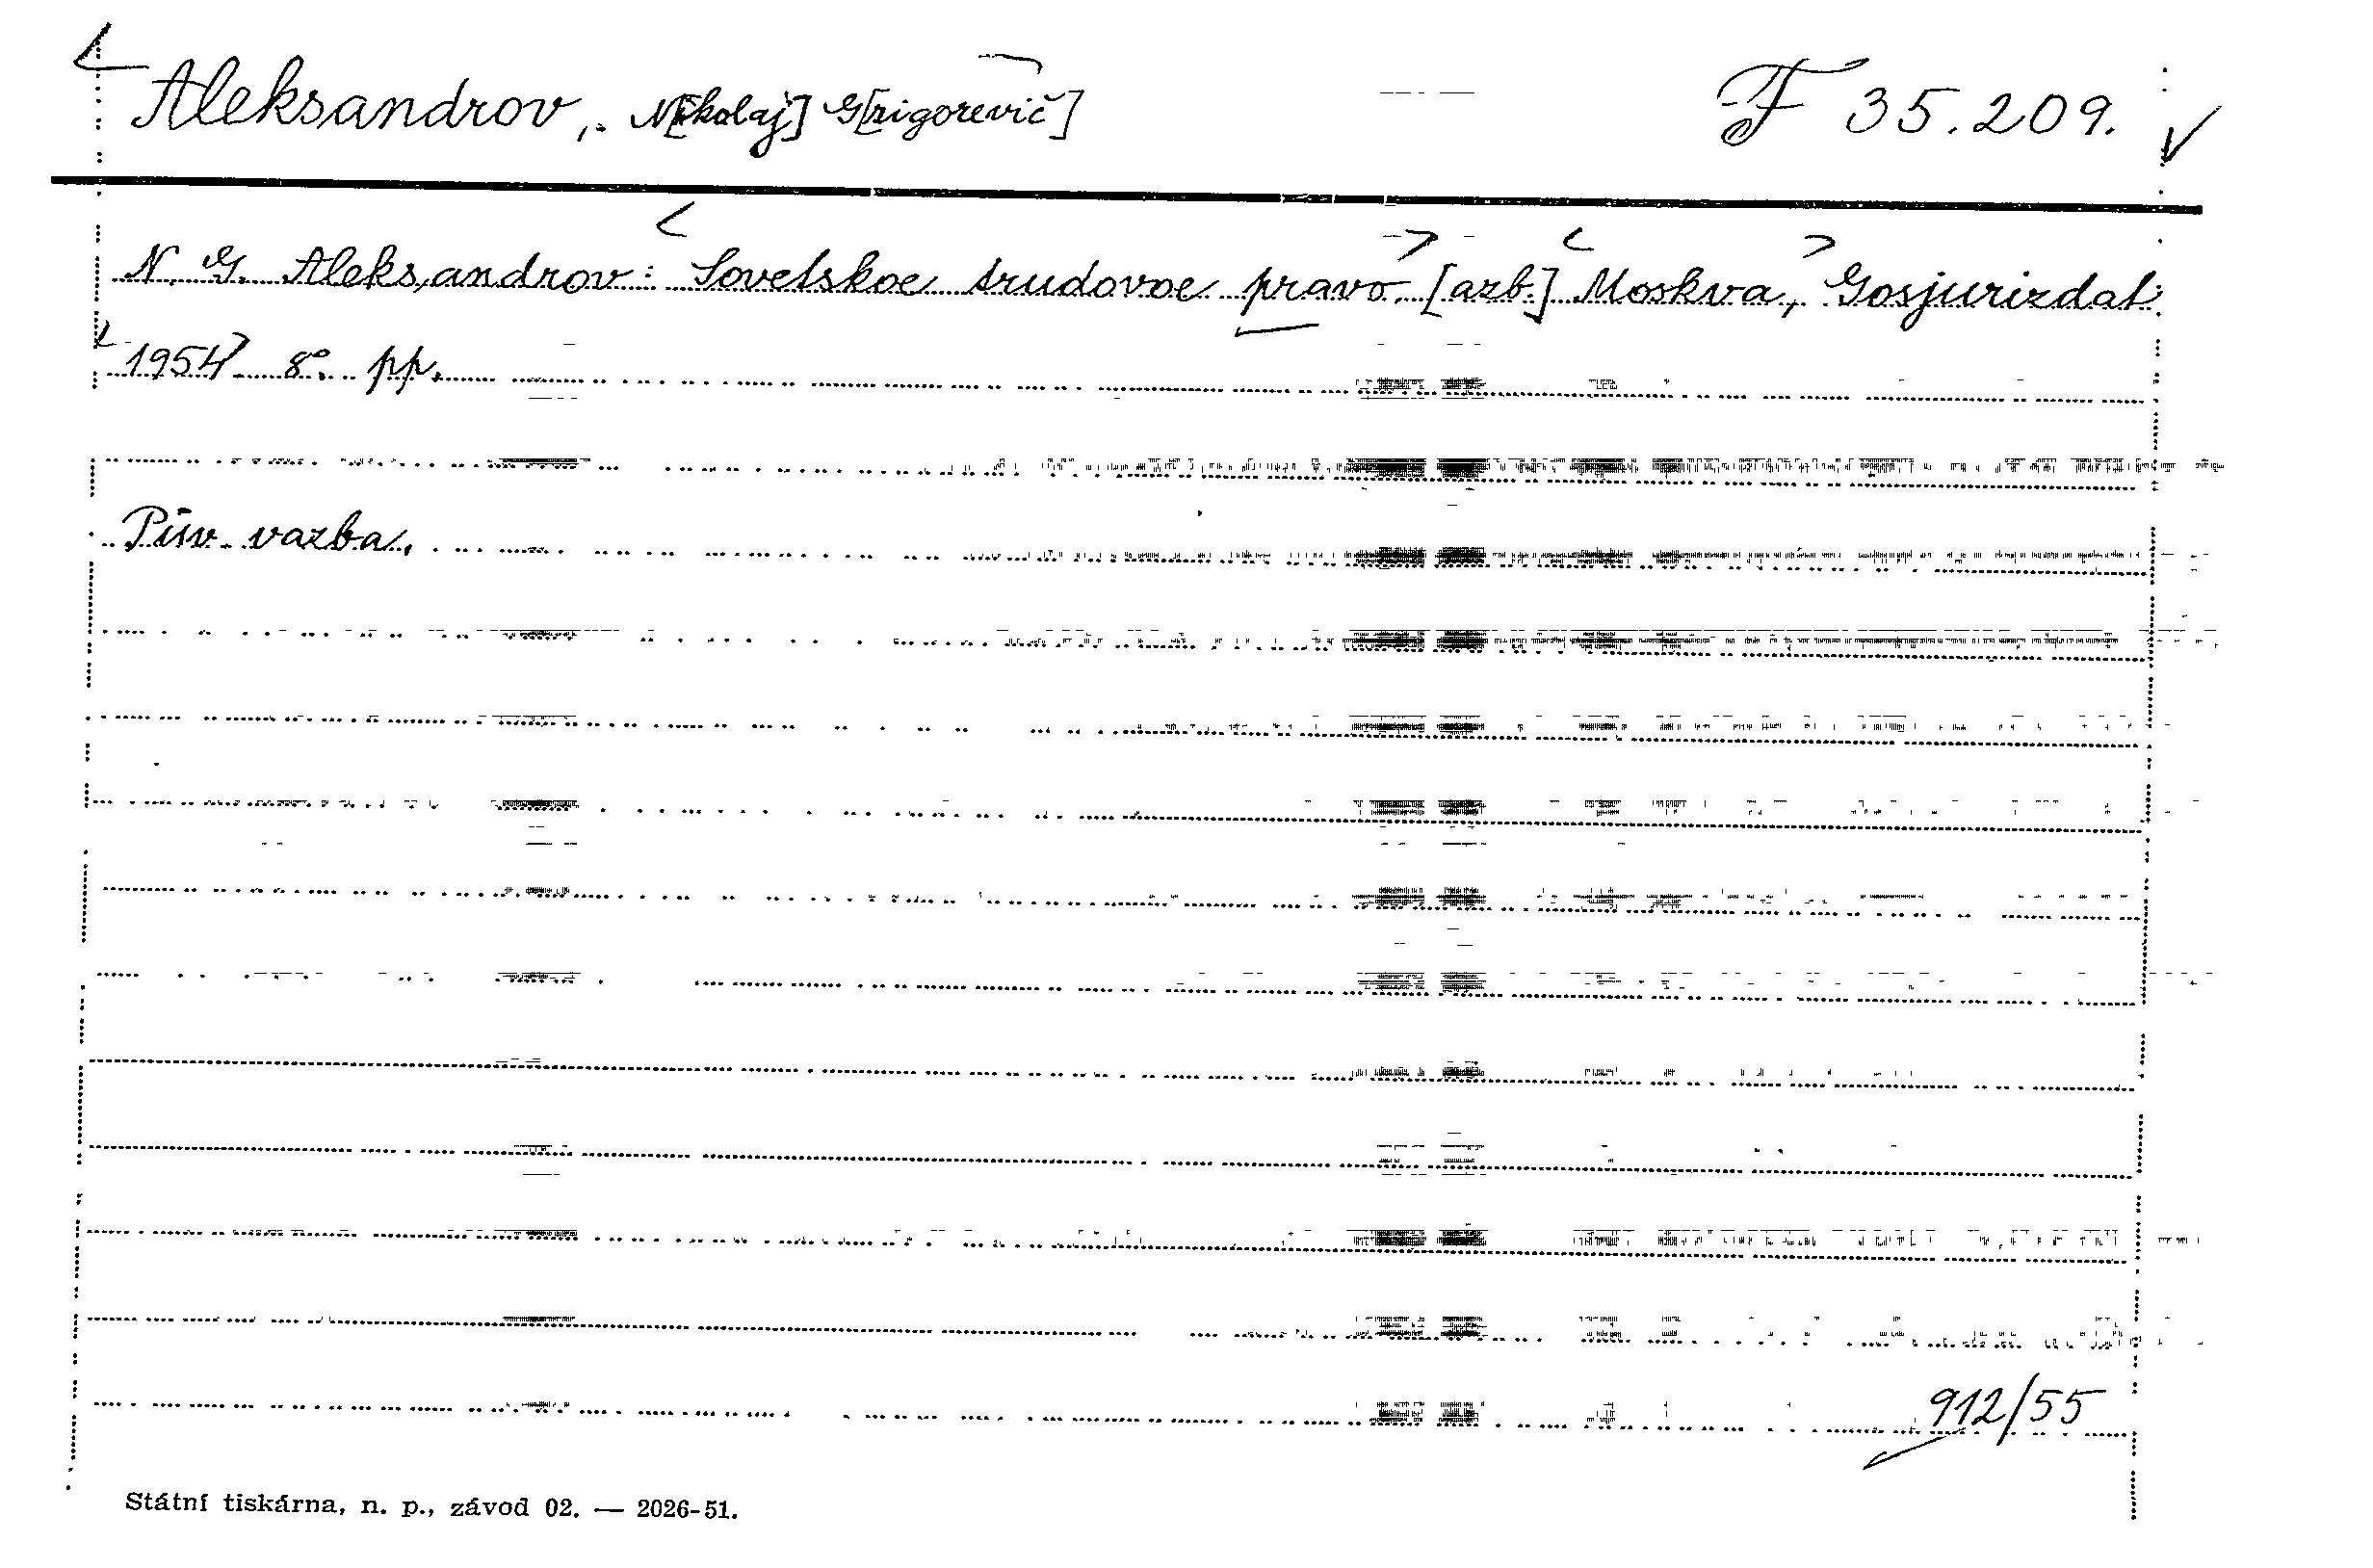 Aleksandrov, N[ikolaj] G[rigorevič] F 35.209.
N. G. Aleksandrov: Sovetskoe trudovoe pravo. [azb.] Moskva, Gosjurizdat
1954. 8°. pp.
Pův. vazba.
912/55
Státní tiskárna, n. p., závod 02. — 2026-51.